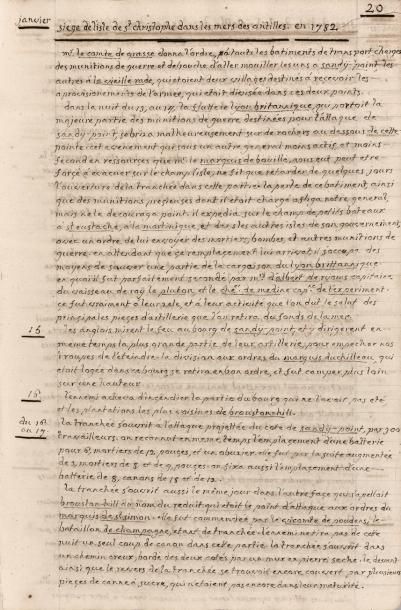 20
janvier
siege de lisle de st christophe dans les mers des antilles en 1782.
mr le comte de grasse donna l'ordre, a toute les batiments de transport, chargés
des munitions de guerre et de bouche d'aller mouiller les uns a sandy-point les
autres a la vieille rade, qui etoient deux villages destinés a recevoir les
aprovisionements de l'armée, qui etait divisée dans ces deux points.
dans la nuit du 13, au 14, la flutte le lyon britannique, qui portoit la
majeure partie des munitions de guerre, destinées pour l'attaque de
sandy-point, se brisa malheureusement sur des rochers au dessous de cette
pointe: cet evenement qui sous un autre general moins actif, et moins
fecond en ressources que mr. le marquis de bouillé, nous eut peut etre
forcé a evacuer sur le champ l'isle, ne fit que retarder de quelques jours
l'ouverture de la tranchée dans cette partie: la perte de ce batiment, ainsi
que des munitions precieuses dont il etait chargé notre general,
mais ne le decouragea point. il expedia sur le champ de petits bateaux
a st eustache, a la martinique, et dans les autres isles de son gouvernement,
avec un ordre de lui envoyer des mortiers, bombes, et autres munitions de
guerre. en attendant que ce remplacement lui arrivat il des
moyens de sauver une partie de la cargaison du lyon brittannique.
en quoi il fut parfaitement secondé par mrs d'albert de rions capitaine
du vaisseau de roy le pluton, et le cher. de medine cape. de l'experiment.
ce fut vraiment a leur zele, et a leur activité que l'on dut le salut des
principales pieces d'artillerie que l'on retira du fonds de la mer.
16
les anglois mirent le feu au bourg de sandy-point, et y dirigerent en
meme temps la plus grande partie de leur artillerie, pour empecher nos
troupes de l'eteindre. la division aux ordres du marquis duchilleau, qui
etait logée dans ce bourg se retira en bon ordre, et fut camper plus loin
sur une hauteur.
l'ennemi acheva d'incendier la partie du bourg qui ne l'avait pas eté
et les plantations les plus voisines de
du 16
au 17
la tranchée s'ouvrit a l'attaque projettée du coté de sandy-point, par 300
travailleurs. on reconnut en meme temps l'emplacement d'une batterie
pour 8. mortiers de 12. pouces, et un obusier. elle fut par la suite augmentée
de 2. mortiers de 8. et de 9. pouces. on fixa aussi l'emplacement d'une
batterie de 8. canons de 18 et de 12.
la tranchée s'ouvrit aussi le meme jour dans l'autre face qui s'apellait
du nom du reduit qui etait le point d'attaque aux ordres du
marquis de st simon. elle fut commencée par le vicomte de poudens, le
bataillon de champagne, etant de tranchée. l'ennemi ne tira pas de cette
nuit un seul coup de canon dans cette partie. la tranchée s'ouvrit dans
un chemin creux, bordé des deux cotés par un mur en pierre seche. le devant
ainsi que le revers de la tranchée se trouvoit encore couvert, par plusieurs
pieces de canne a sucre, qui n'etaient pas encore dans leur maturité.